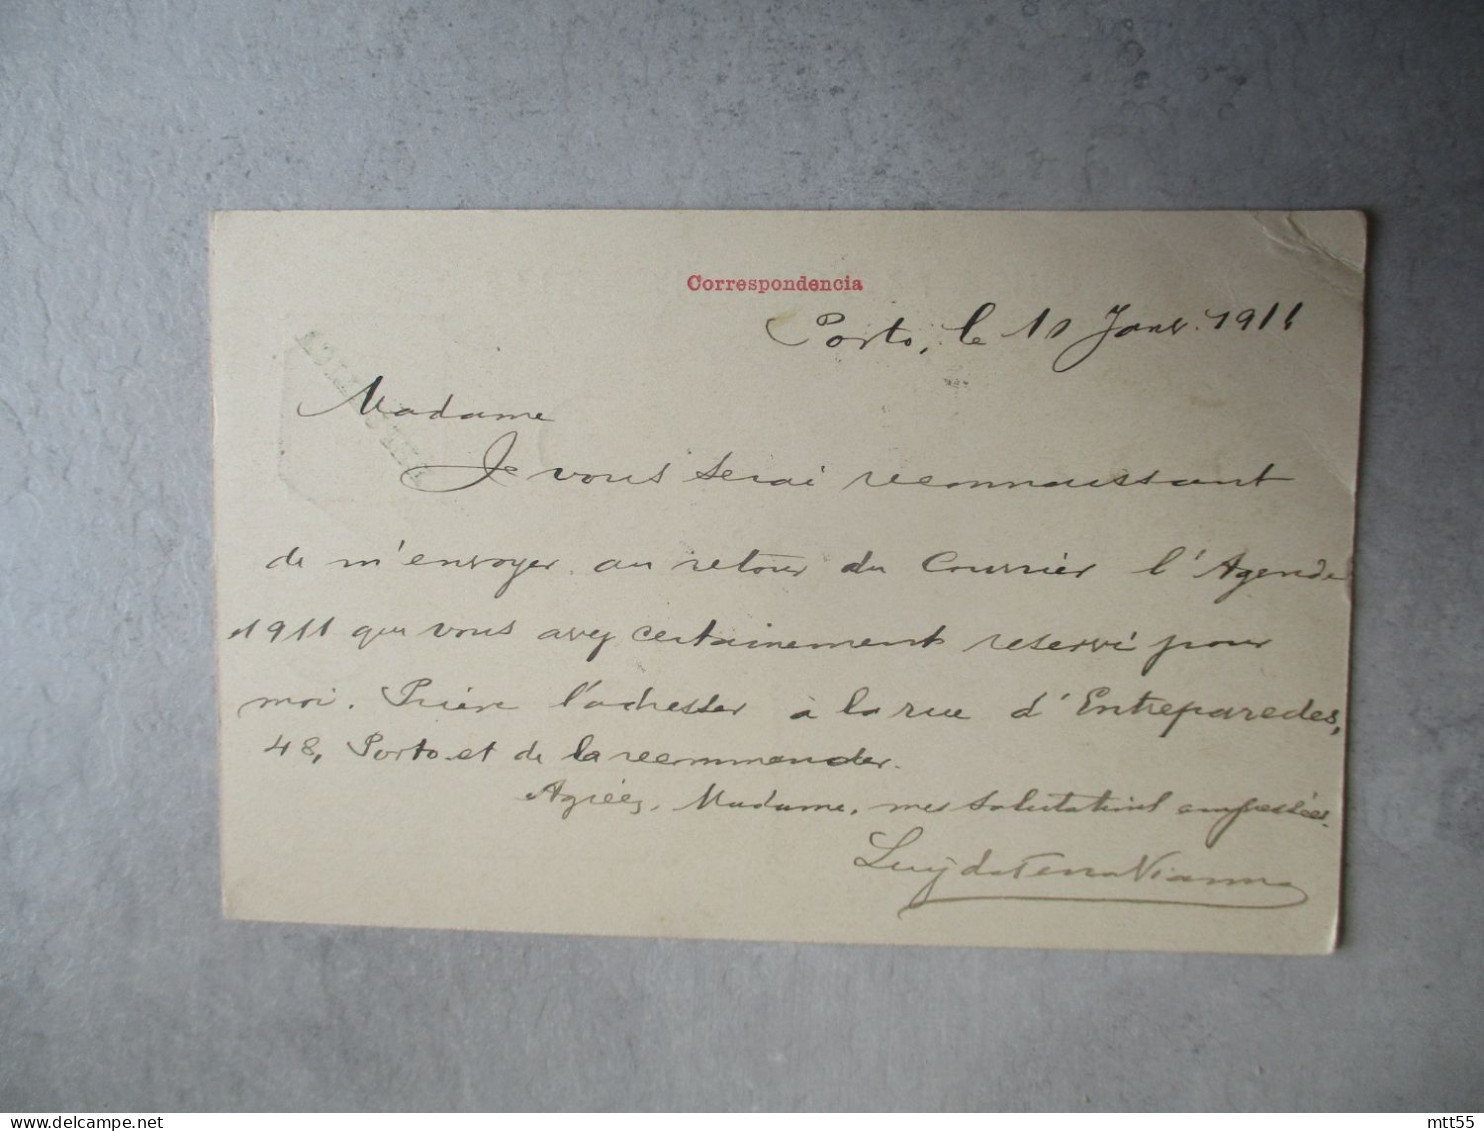 Correspondencia
Porto, le 11 Janv. 1911
Madame
Je vous serai reconnaissant
de m'envoyer au retour du Courrier l'Agenda
1911 que vous avez certainement reservé pour
moi. Prière l'adresser à la rue d'Entreparedes,
48, Porto et de la recommander.
Agréez, Madame, mes salutations empressées.
Luiz da Terra Vianna
delcampe.net
mtt55